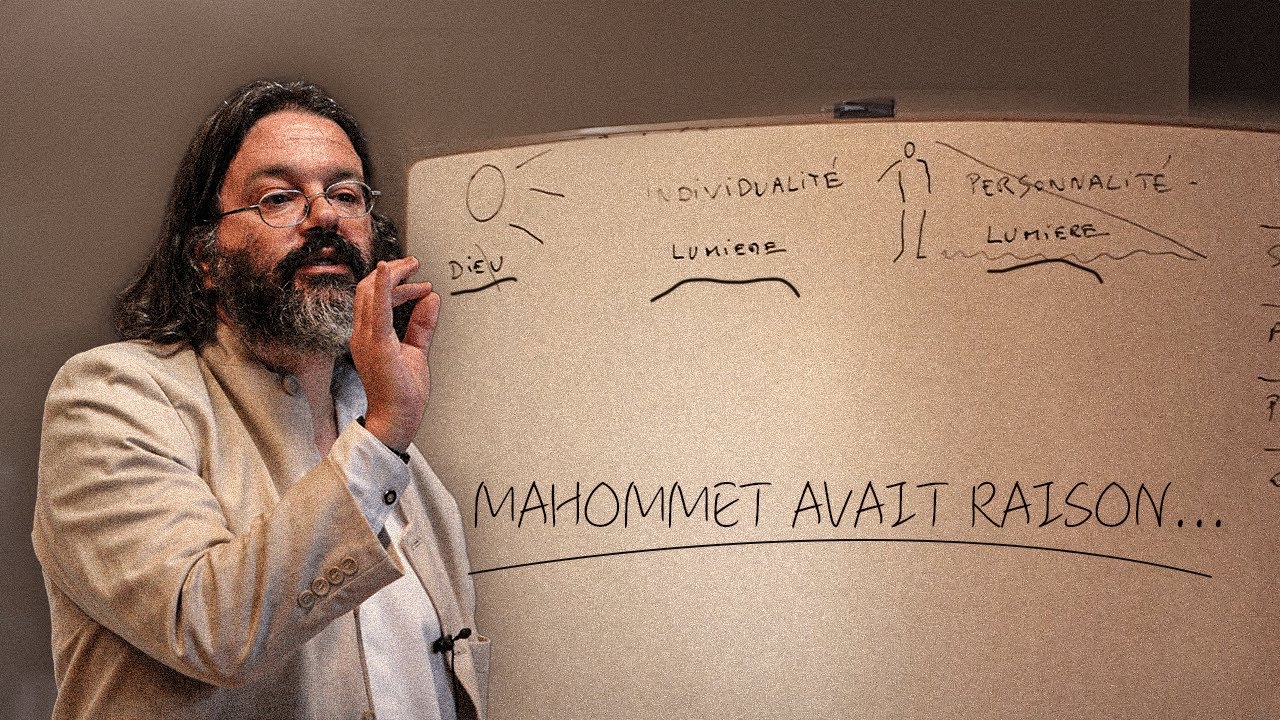 INDIVIDUALITÉ
PERSONNALITÉ -
DIEU
LUMIERE
LUMIERE
MAHOMMET AVAIT RAISON...